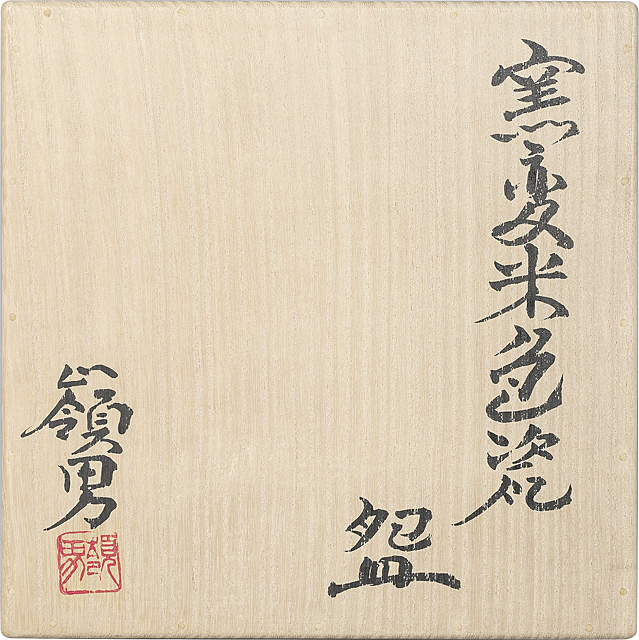 窯変米色瓷
盌
嶺男
嶺男